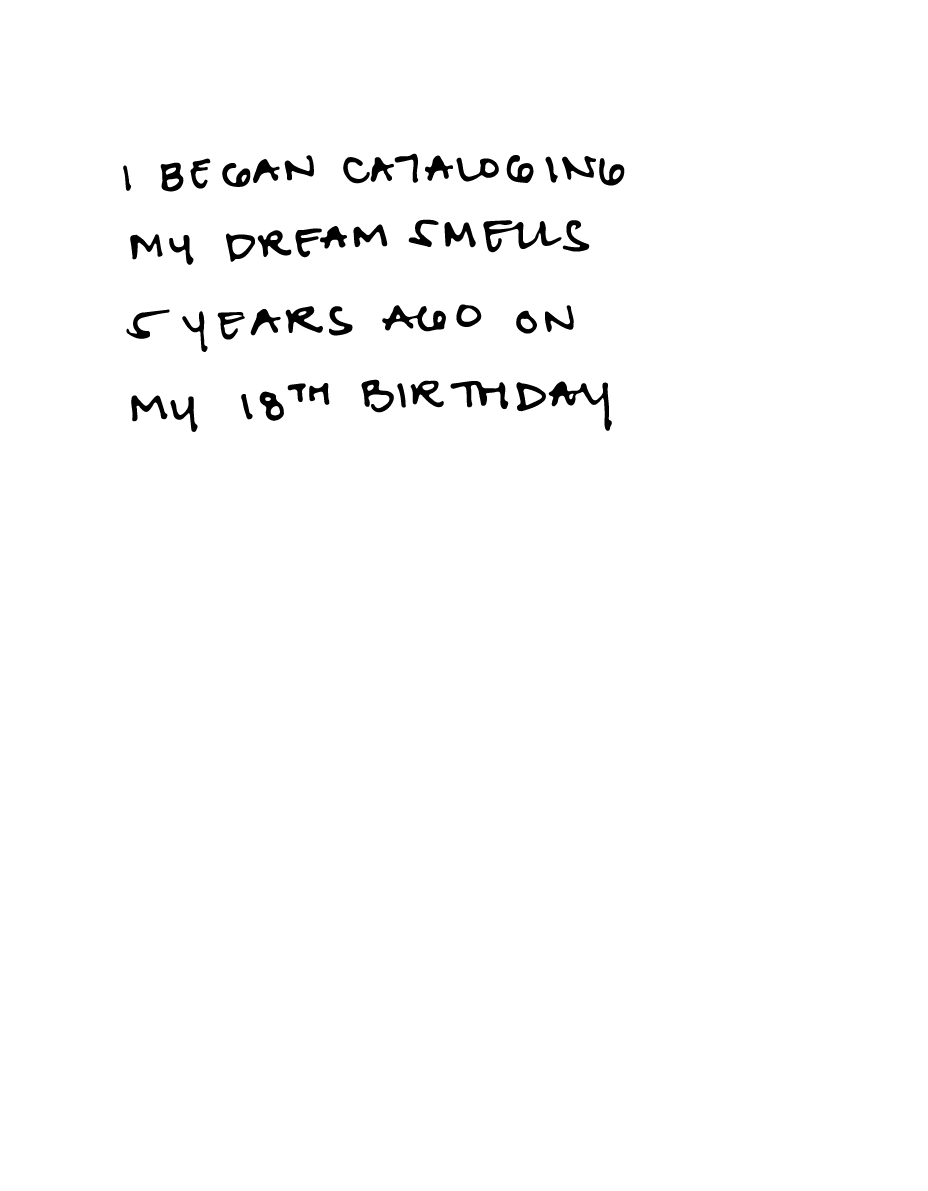 I BEGAN CATALOGING
MY DREAM SMELLS
5 YEARS AGO ON
MY 18TH BIRTHDAY